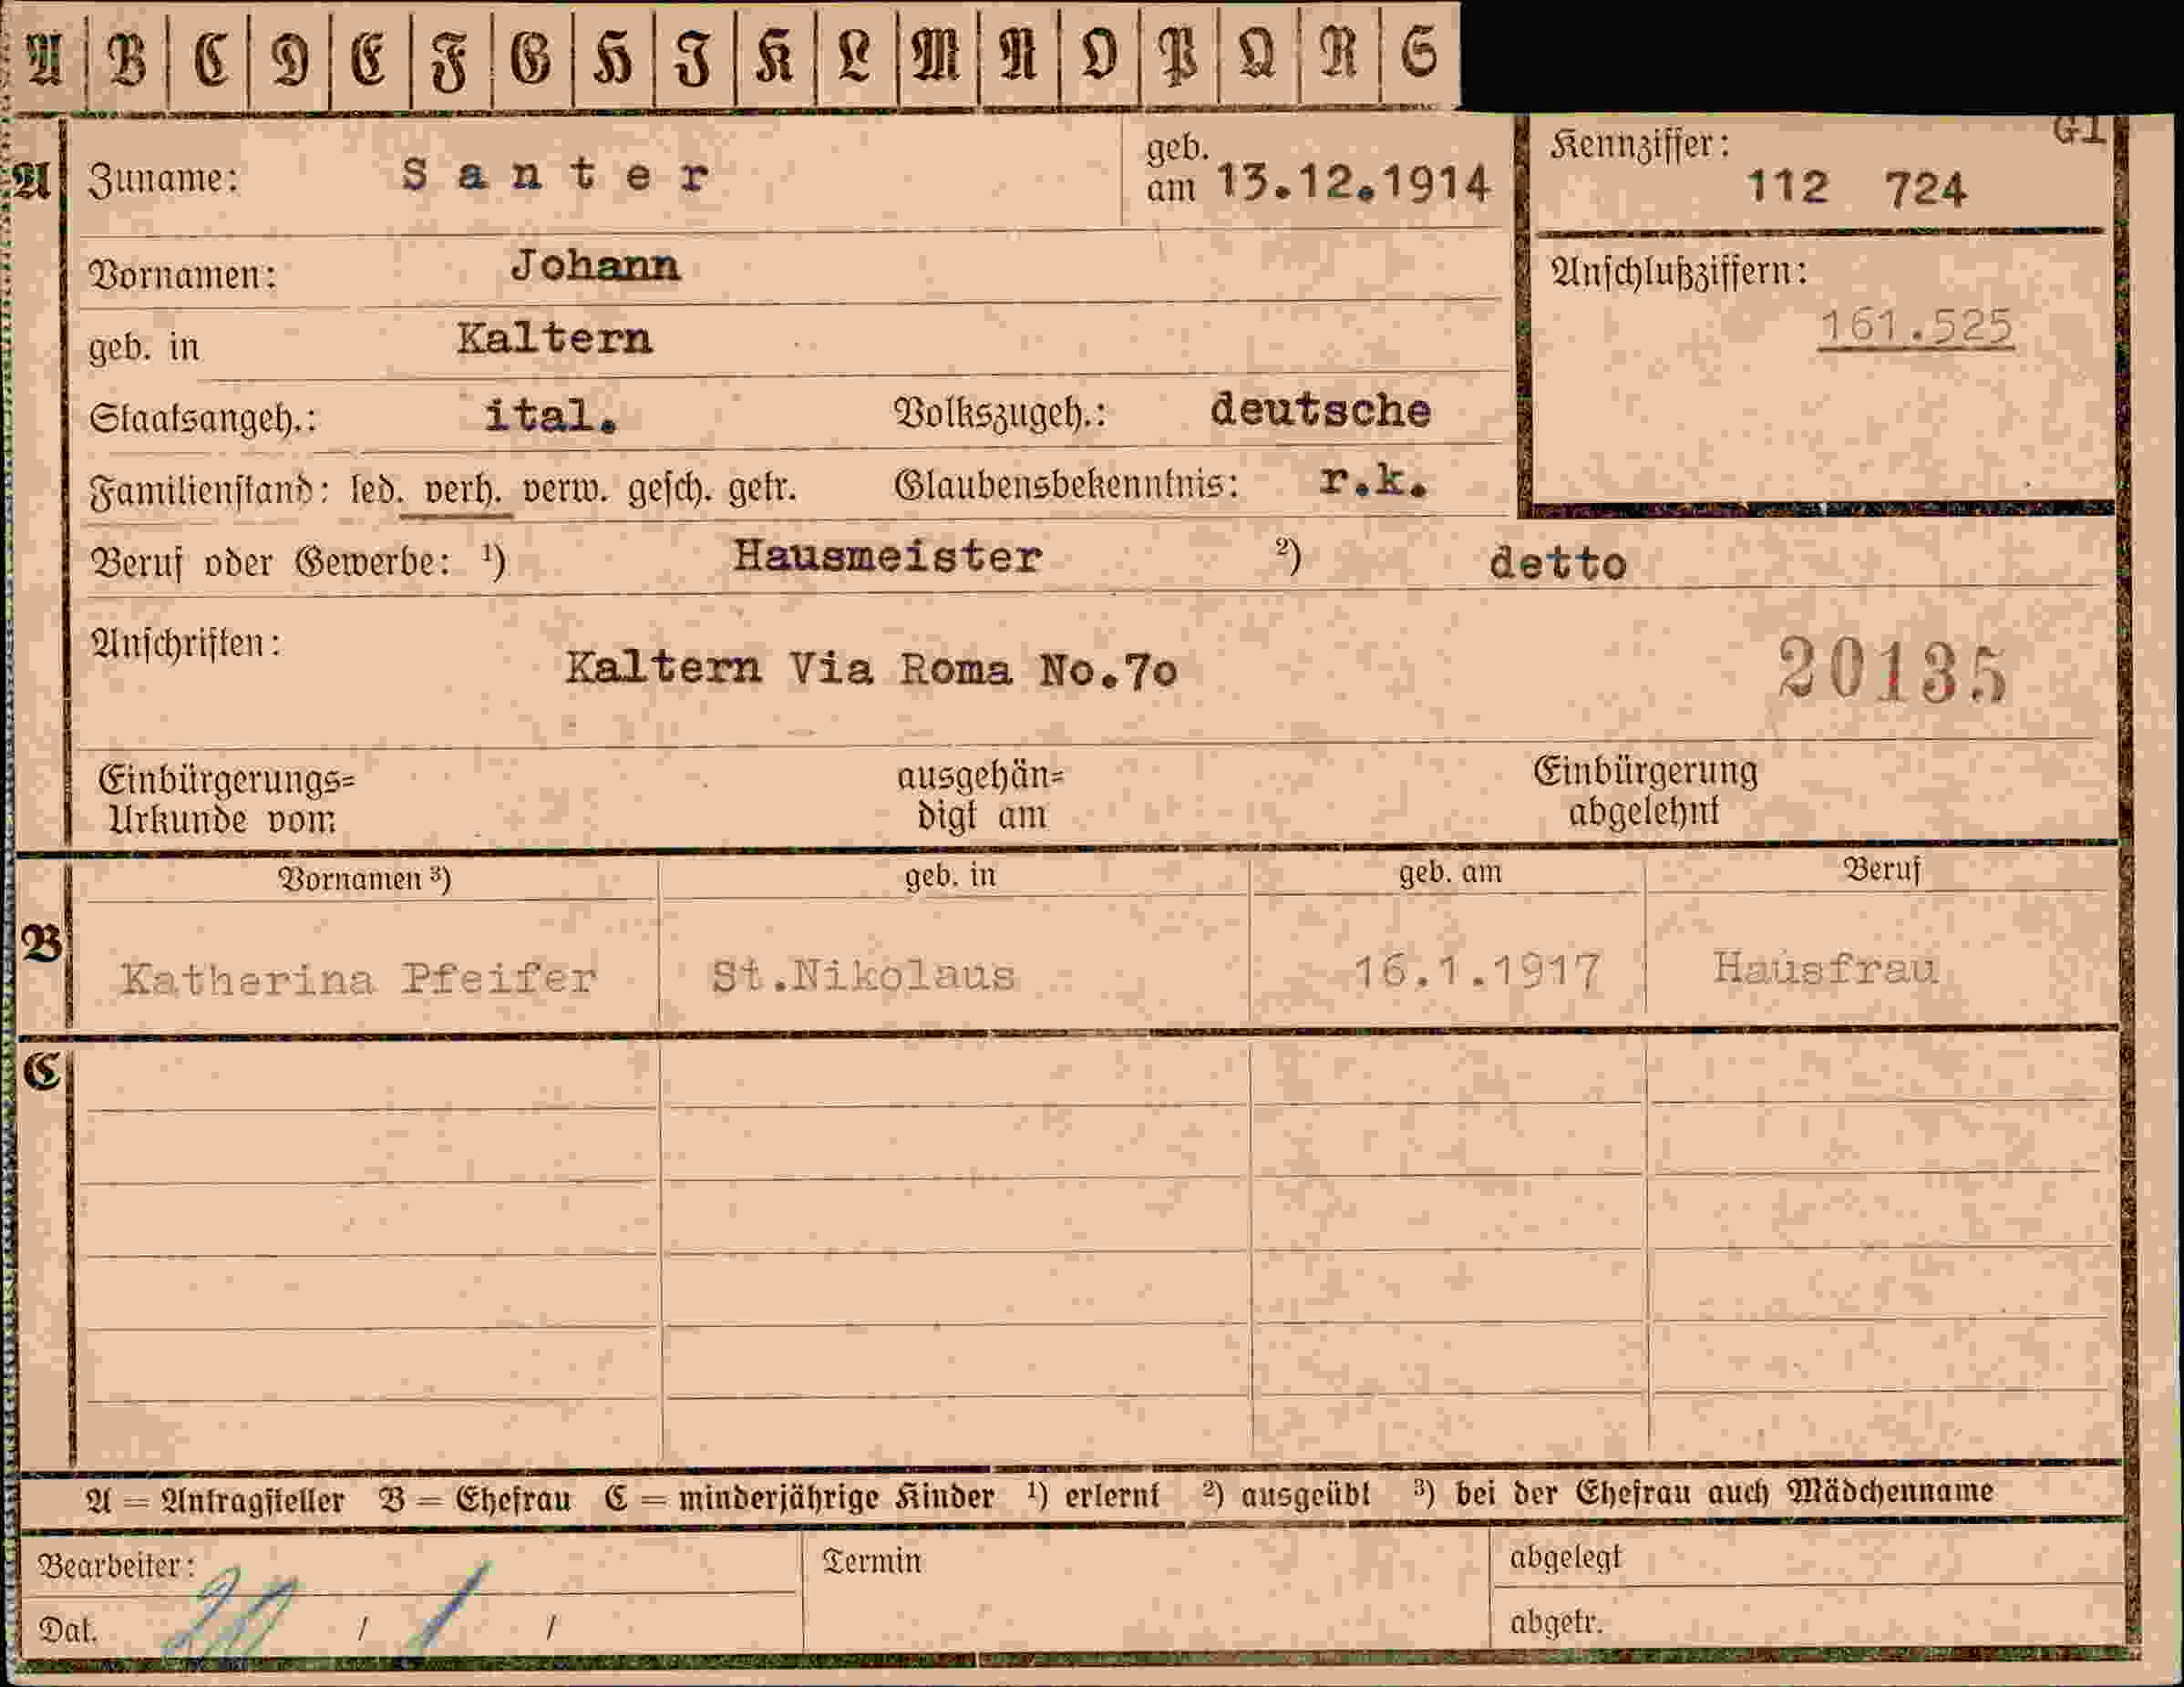 A B C D E F G H I K L M N O P Q R S
G1
A Zuname: Santer geb. am 13.12.1914 Kennziffer: 112 724
Vornamen: Johann Anschlußziffern:
geb. in Kaltern 161.525
Staatsangeh.: ital. Volkszugeh.: deutsche
Familienstand: led. verh. verw. gesch. getr. Glaubensbekenntnis: r.k.
Beruf oder Gewerbe: ¹) Hausmeister ²) detto
Anschriften: Kaltern Via Roma No.7o 20135
Einbürgerungs= ausgehän= Einbürgerung
Urkunde vom digt am abgelehnt
Vornamen ³) geb. in geb. am Beruf
B Katherina Pfeifer St.Nikolaus 16.1.1917 Hausfrau
C
A = Antragsteller B = Ehefrau C = minderjährige Kinder ¹) erlernt ²) ausgeübt ³) bei der Ehefrau auch Mädchenname
Bearbeiter: Termin abgelegt
Dat. / / abgetr.